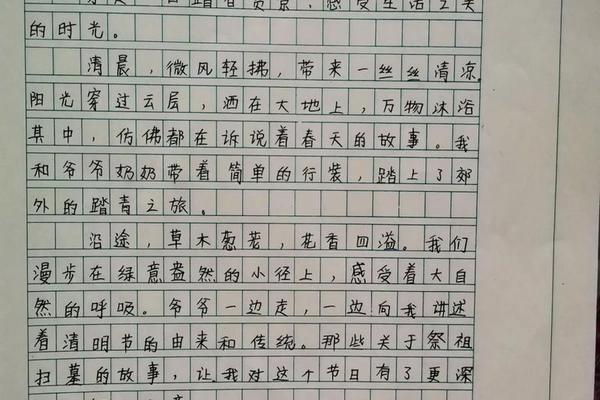 踏春赏景，感受生活之美
的时光。
清晨，微风轻拂，带来一丝丝清凉。
阳光穿过云层，洒在大地上，万物沐浴
其中，仿佛都在诉说着春天的故事。我
和爷爷奶奶带着简单的行装，踏上了郊
外的踏青之旅。
沿途，草木葱茏，花香四溢。我们
漫步在绿意盎然的小径上，感受着大自
然的呼吸。爷爷一边走，一边向我讲述
着清明节的由来和传统。那些关于祭祖
扫墓的故事，让我对这个节日有了更深